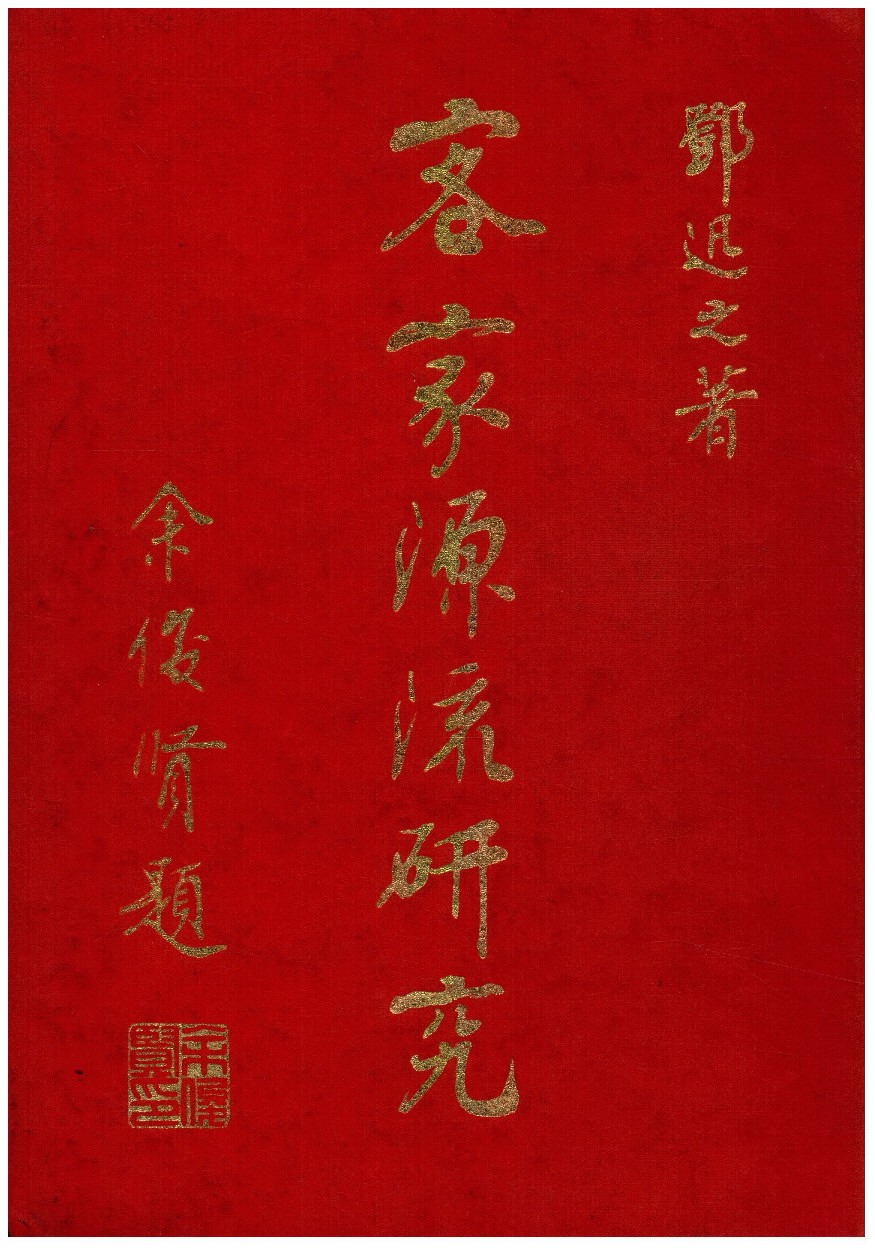 鄧迅之著
客家源流研究
余俊賢題
余俊賢印